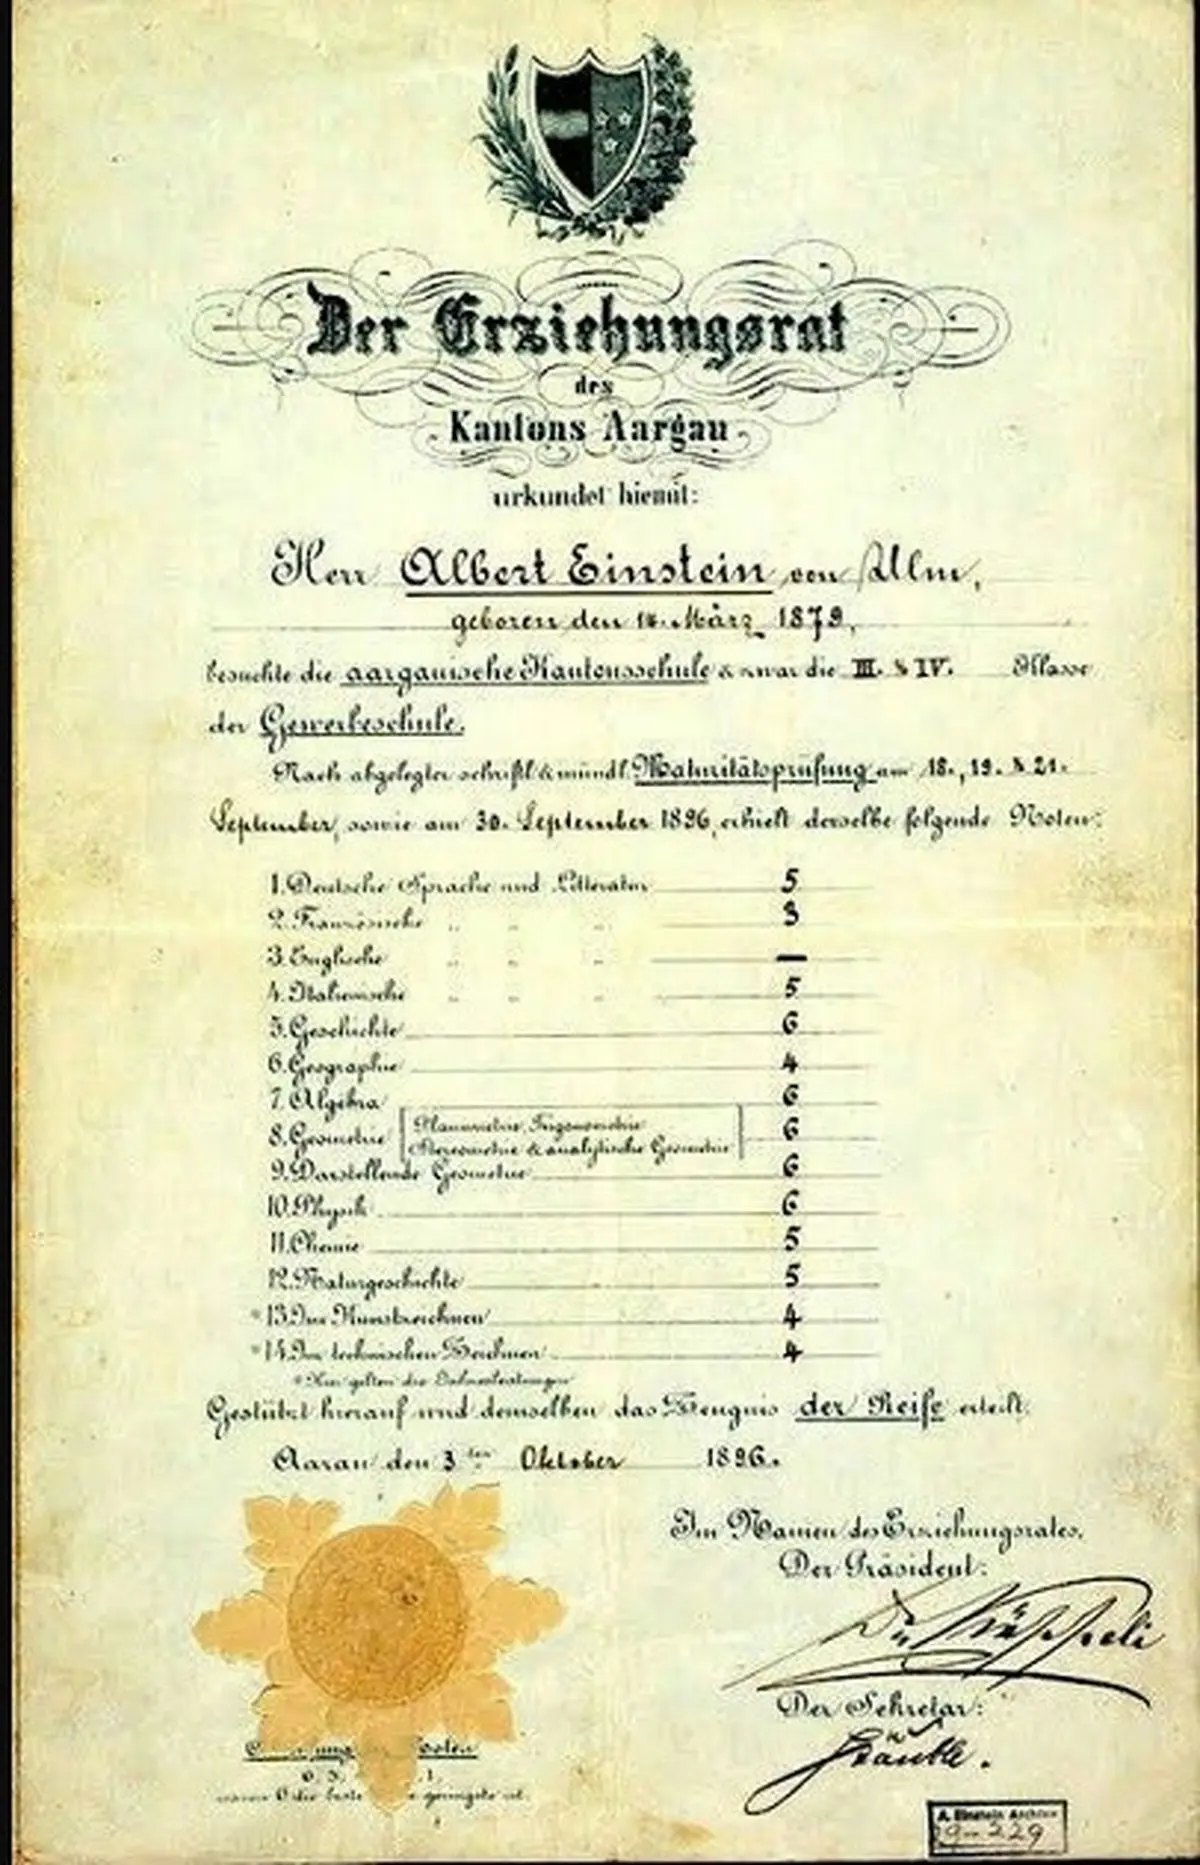 Der Erziehungsrat
des
Kantons Aargau
urkundet hiemit:
Herr Albert Einstein von Ulm,
geboren den 14. März 1879,
besuchte die aargauische Kantonsschule & zwar die III. & IV. Klasse
der Gewerbeschule.
Nach abgelegter schriftl. & mündl. Maturitätsprüfung am 18., 19. & 21.
September, sowie am 30. September 1896, erhielt derselbe folgende Noten:
1. Deutsche Sprache und Litteratur 5
2. Französische " " " 3
3. Englische " " " —
4. Italienische " " " 5
5. Geschichte 6
6. Geographie 4
7. Algebra 6
8. Geometrie [Planimetrie, Trigonometrie 6
Stereometrie & analytische Geometrie]
9. Darstellende Geometrie 6
10. Physik 6
11. Chemie 5
12. Naturgeschichte 5
* 13. Im Kunstzeichnen 4
* 14. Im technischen Zeichnen 4
* Hier gelten die Jahresleistungen
Gestützt hierauf wird demselben das Zeugnis der Reife erteilt.
Aarau den 3ten Oktober 1896.
Im Namen des Erziehungsrates,
Der Präsident:
Dr. Käppeli
Der Sekretär:
Stäuble.
6. 5.
1.
6 die beste geringste ist.
A. Einstein Archive
229